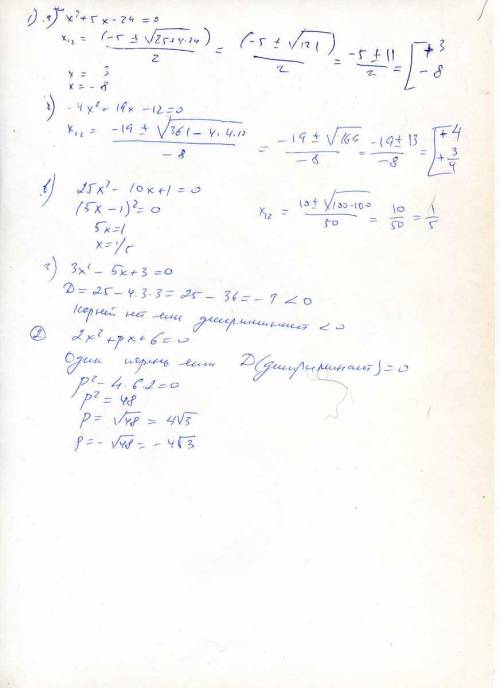 1) а) x² + 5x - 24 = 0
x₁₂ = (-5 ± √25+4·24)/2 = (-5 ± √121)/2 = (-5 ± 11)/2 = [+3 -8
x = 3
x = -8
б) -4x² + 19x - 12 = 0
x₁₂ = (-19 ± √361 - 4·4·12)/-8 = (-19 ± √169)/-8 = (-19 ± 13)/-8 = [+4 +3/4
в) 25x² - 10x + 1 = 0
(5x - 1)² = 0 x₁₂ = (10 ± √100-100)/50 = 10/50 = 1/5
5x = 1
x = 1/5
г) 3x² - 5x + 3 = 0
D = 25 - 4·3·3 = 25 - 36 = - < 0
Корней нет если дискриминант < 0
② 2x² + px + 6 = 0
Один корень если D(дискриминант) = 0
p² - 4·6·2 = 0
p² = 48
p = √48 = 4√3
p = -√48 = -4√3